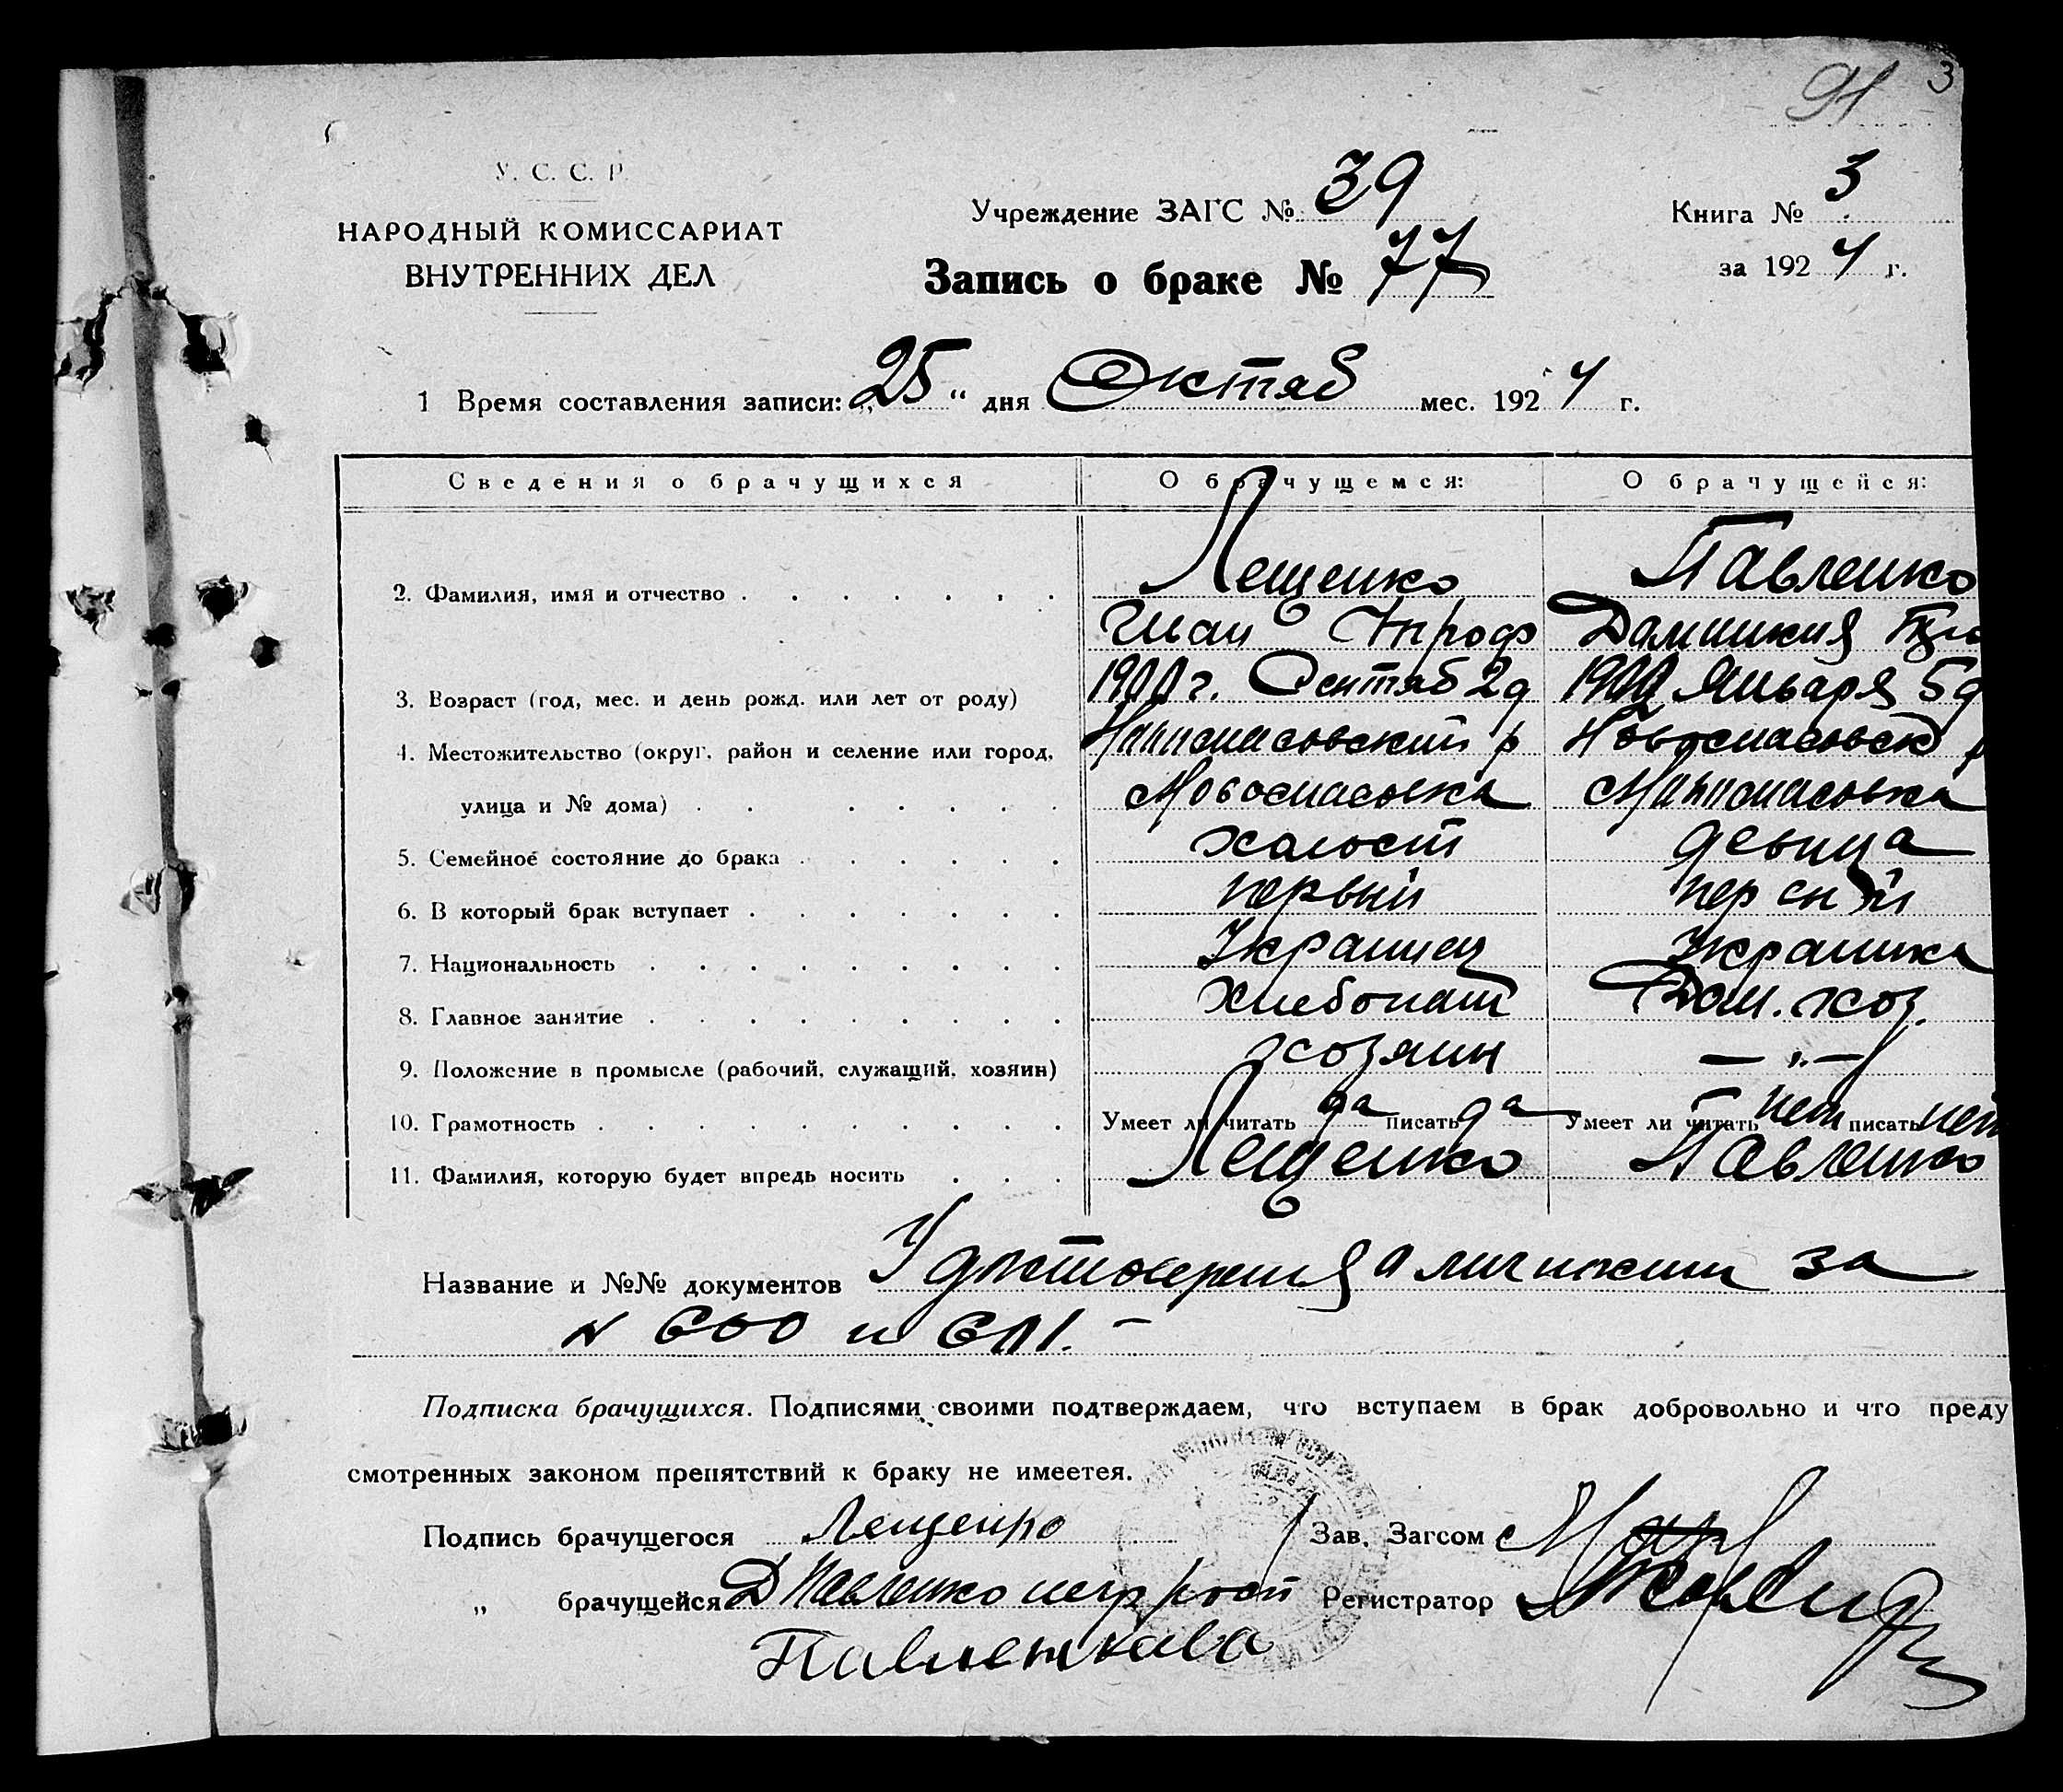 91 3
У. С. С. Р.
НАРОДНЫЙ КОМИССАРИАТ
ВНУТРЕННИХ ДЕЛ
Учреждение ЗАГС № 39
Запись о браке № 77
Книга № 3
за 1924 г.
1 Время составления записи: „25“ дня Октяб мес. 1924 г.
Сведения о брачущихся О брачущемся: О брачущейся:
2. Фамилия, имя и отчество . . . . . . . Лещенко Павленко
3. Возраст (год, мес. и день рожд. или лет от роду) 1900 г. Сентяб 2д Января 5д
4. Местожительство (округ, район и селение или город,
улица и № дома) . . . . . . . Новоспасовка
5. Семейное состояние до брака . . . . . . холост девица
6. В который брак вступает . . . . . . . первый
7. Национальность . . . . . . . . . Украинец Украинка
8. Главное занятие . . . . . . . . . Хлебопаш Дом. хоз.
9. Положение в промысле (рабочий, служащий, хозяин) хозяин — „ —
10. Грамотность . . . . . . . . . . Умеет ли читать да писать да Умеет ли читать нет писать нет
11. Фамилия, которую будет впредь носить . . . Лещенко Павленко
Название и №№ документов Удостоверения о личности за
№ 600 и 601. –
Подписка брачущихся. Подписями своими подтверждаем, что вступаем в брак добровольно и что преду
смотренных законом препятствий к браку не имеетея.
Подпись брачущегося Лещенко Зав. Загсом
„ брачущейся Д Павленко Регистратор